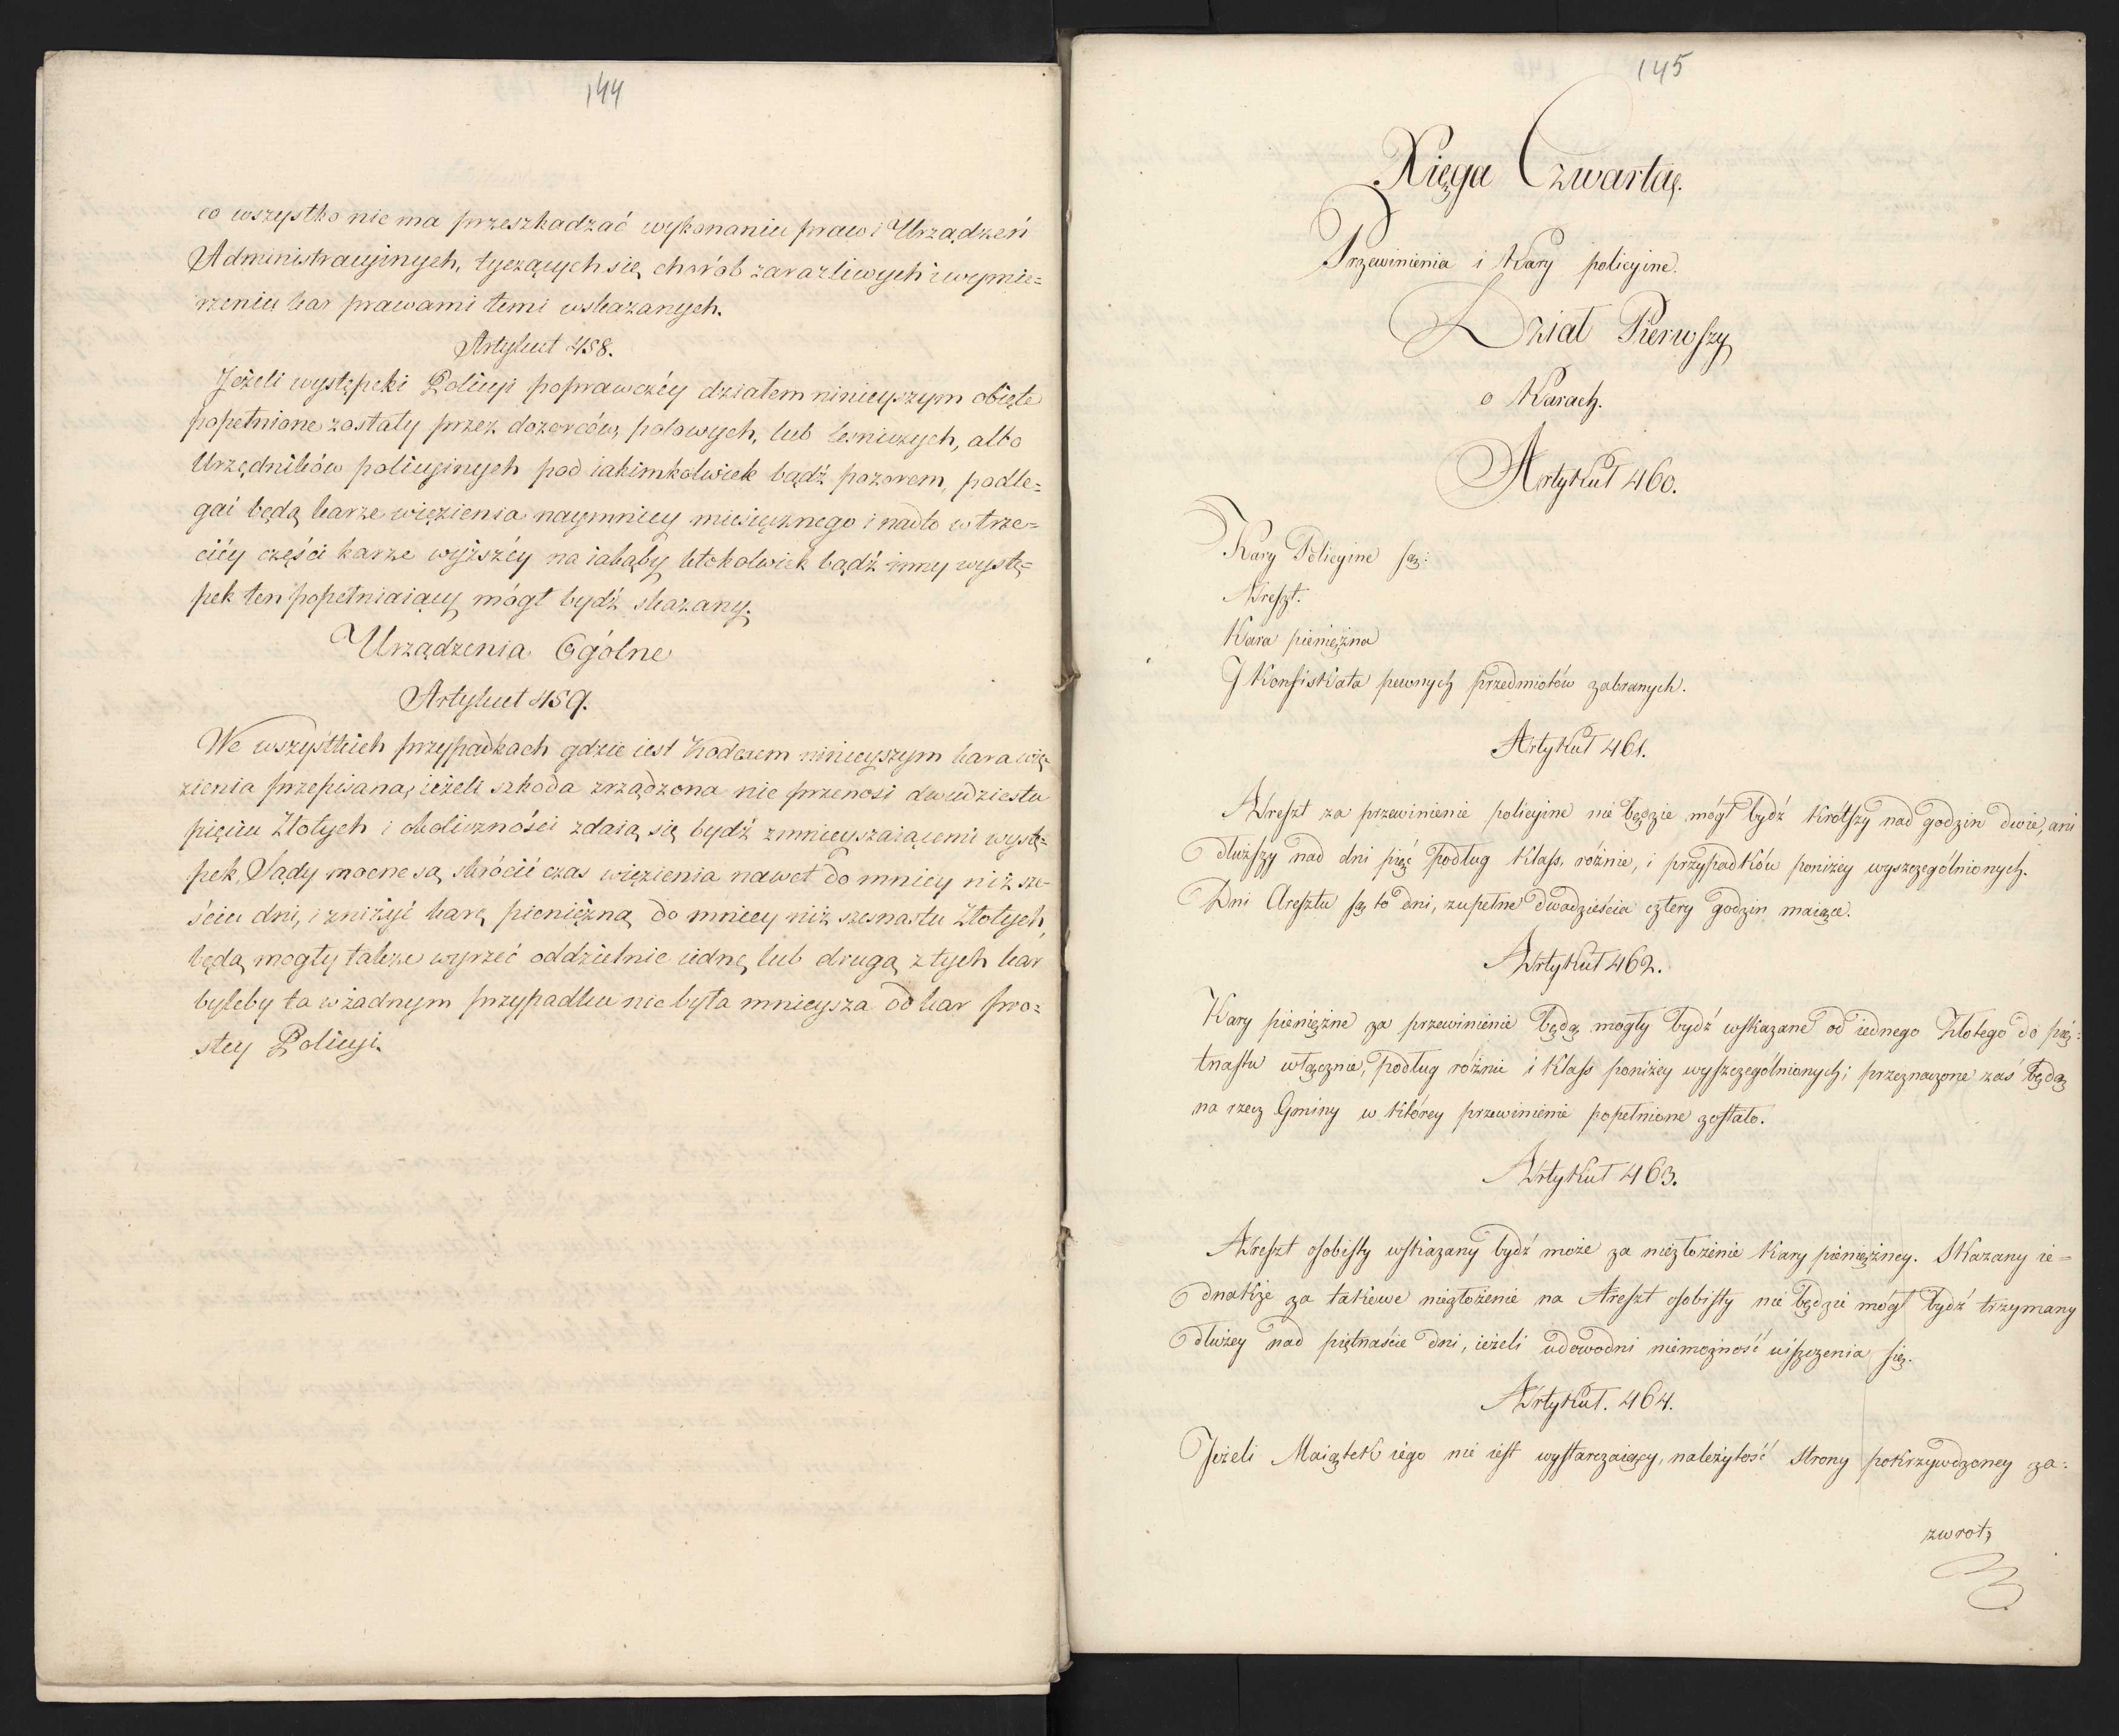 144
co wszystko nie ma przeszkadzać wykonaniu praw i Urządzeń
Administracyinych, tyczących się chorób zaraźliwych i wymie=
rzeniu kar prawami temi wskazanych.
Artykuł 458.
Jeżeli występki Policyi poprawczéy działem ninieyszym obięte
popełnione zostały przez dozorców, polowych, lub leśniczych, albo
Urzędników policyinych pod iakimkolwiek bądź pozorem, podle=
gać będą karze więzienia naymniéy miesięcznego i nadto w trze=
ciéy części karze wyższéy na iakąby ktokolwiek bądź inny wystę=
pek ten popełniaiący mógł bydź skazany.
Urządzenia Ogólne
Artykuł 459.
We wszystkich przypadkach gdzie iest kodexem ninieyszym kara wię=
zienia przepisana, ieżeli szkoda zrządzona nie przenosi dwudziestu
pięciu Złotych i okoliczności zdaią się bydź zmnieyszaiącemi wystę=
pek, Sądy mocne są skrócić czas więzienia nawet do mniéy niż sze=
ściu dni, i zniżyć karę pieniężną do mniéy niż szesnastu Złotych,
będą mogły także wyrzéć oddzielnie iedną lub drugą z tych kar
byleby ta w żadnym przypadku nie była mnieysza od kar pro=
stey Policyi.
145
Xięga Czwarta.
Przewinienia i Kary policyine.
Dział Pierwszy
o Karach.
Artykuł 460.
Kary Policyine są:
Areszt.
Kara pieniężna
I Konfiskata pewnych przedmiotów zabranych.
Artykuł 461.
Areszt za przewinienie policyine nie będzie mógł bydź krótszy nad godzin dwie, ani
dłuższy nad dni pięć podług Klass, różnic, i przypadków poniżéy wyszczególnionych.
Dni Aresztu są to dni, zupełne dwadzieścia cztery godzin maiące.
Artykuł 462.
Kary pieniężne za przewinienie będą mogły bydź wskazane od iednego Złotego do pię=
tnastu włącznie, podług różnic i Klass poniżey wyszczególnionych; przeznaczone zaś będą
na rzecz Gminy w którey przewinienie popełnione zostało.
Artykuł 463.
Areszt osobisty wskazany bydź może za niezłożenie Kary pieniężney. Skazany ie=
dnakże za takiewe niezłożenie na Areszt osobisty nie będzie mógł bydź trzymany
dłużey nad piętnaście dni, ieżeli udowodni niemożność uiszczenia się.
Artykuł. 464.
Jeżeli Maiątek iego nie iest wystarczaiący, należytość strony pokrzywdzoney za=
zwrot,